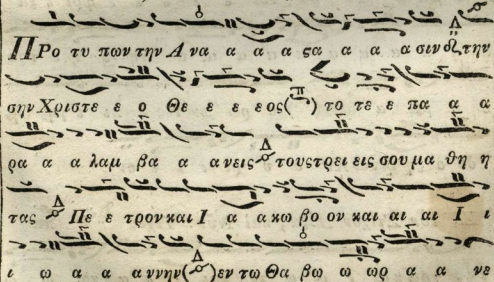 Προ τυ πων την Α να α α α ςα α α α σιν την
σην Χριστε ε ο Θε ε ε ε ος (π) το τε ε πα α α
ρα α α λαμ βα α α νεις Δ τους τρει εις σου μα θη η
τας Δ Πε ε τρον και Ι α α κω βο ον και αι αι Ι ι
ι ω α α α ννην (Δ) εν τω Θα βω ω ωρ α α νε